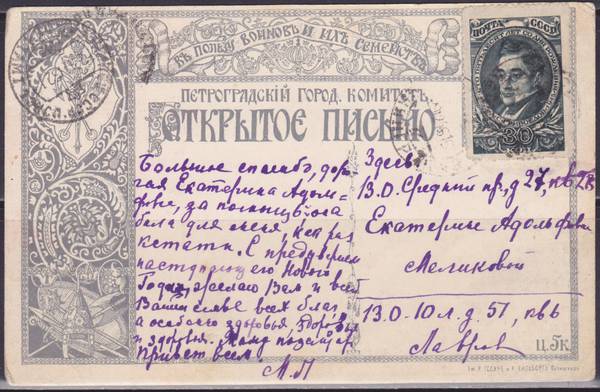 ВЪ ПОЛЬЗУ ВОИНОВЪ И ИХЪ СЕМЕЙСТВЪ
ПЕТРОГРАДСКІЙ ГОРОД. КОМИТЕТЪ
ОТКРЫТОЕ ПИСЬМО
ПОЧТА СССР
30
Большое спасибо, доро-
гая Екатерина Адоль-
фовна, за
была для меня, как раз
кстати. С преддверием
наступающего Нового
Года, желаю Вам и всей
Вашей семье всех благ
а особенно здоровья, здоровья
и здоровья.
Привет всем.
М.Л
Здесь
В.О. Средний пр, д 27, кв 28
Екатерине Адольфовне
Меликовой
В.О-10 л. д. 57, кв 6
Лавров